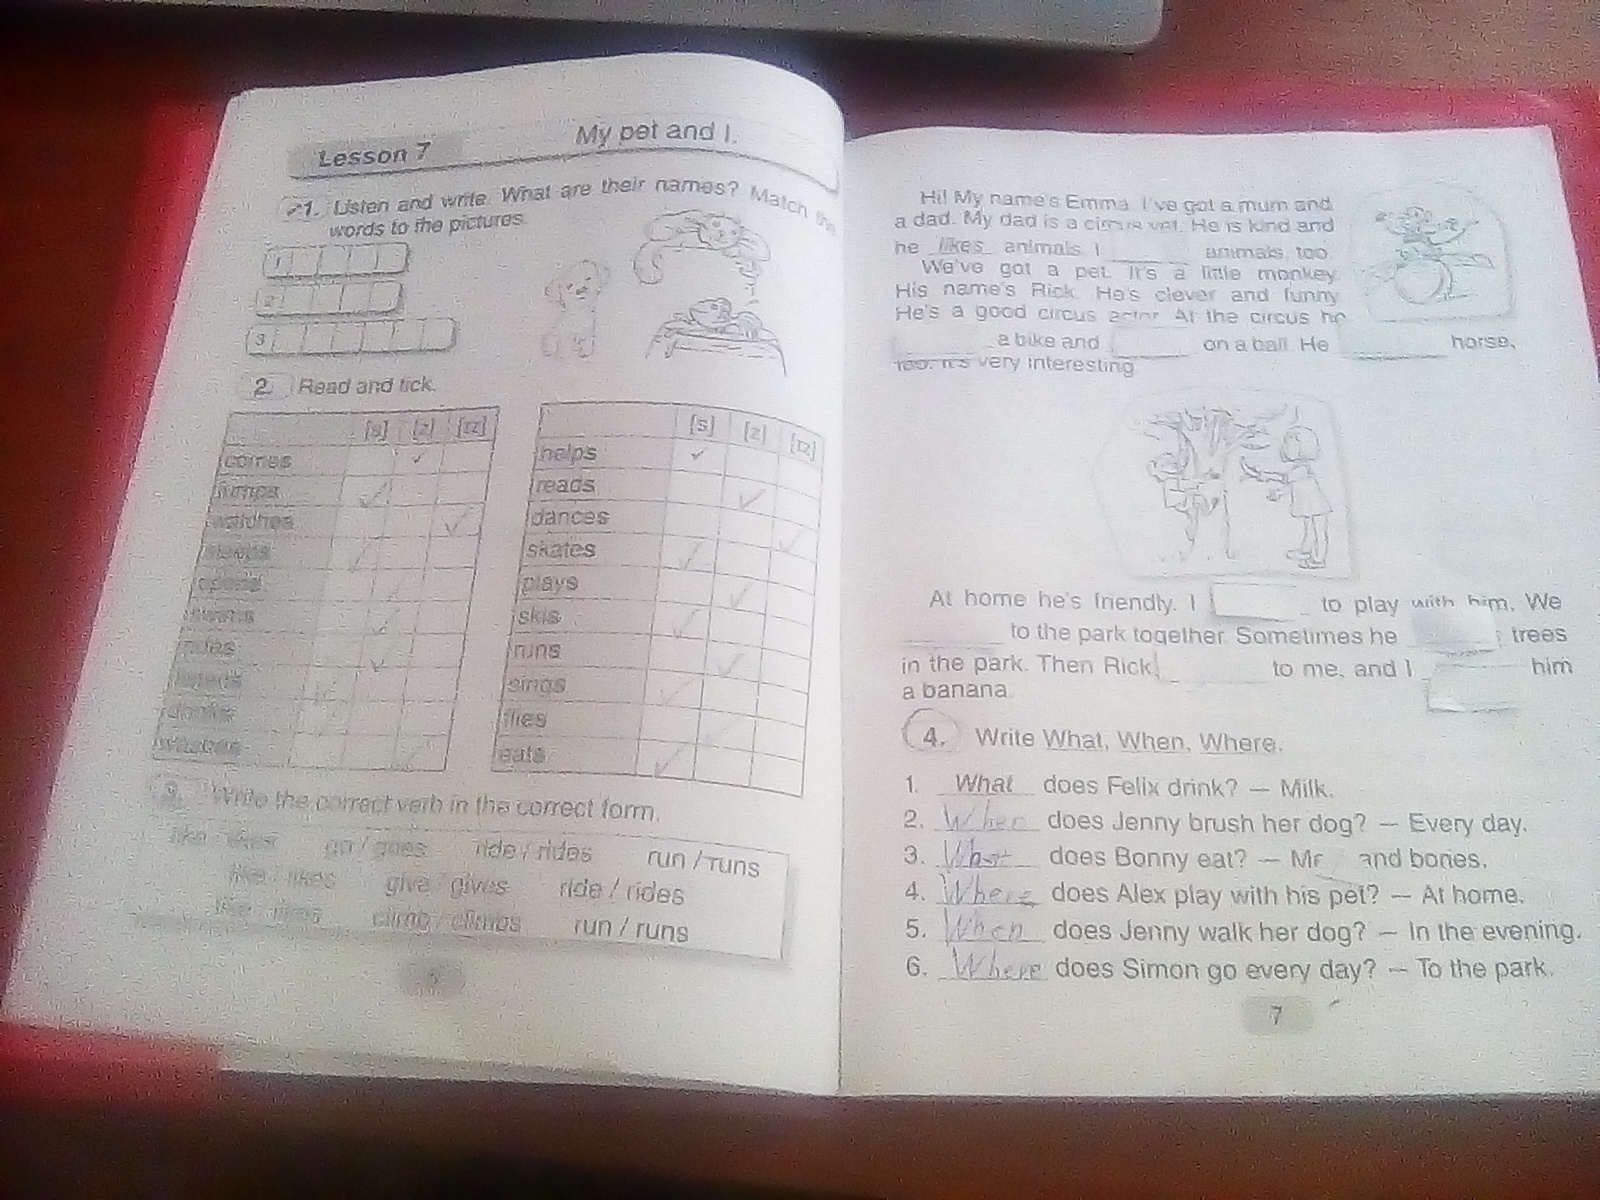 Lesson 7 My pet and I.
1. Listen and write. What are their names? Match the
words to the pictures.
1
2
3
2. Read and tick.
[s] [z] [ɪz]
comes ✓
jumps ✓
watches ✓
sleeps ✓
opens
swims ✓
rides ✓
drinks
[s] [z] [ɪz]
helps ✓
reads ✓
dances ✓
skates ✓
plays ✓
skis ✓
runs ✓
sings ✓
flies
eats ✓
3. Write the correct verb in the correct form.
like / likes go / goes ride / rides run / runs
like / likes give / gives ride / rides
like / likes climb / climbs run / runs
6
Hi! My name's Emma. I've got a mum and
a dad. My dad is a circus vet. He is kind and
he likes animals. I animals, too.
We've got a pet. It's a little monkey.
His name's Rick. He's clever and funny.
He's a good circus actor. At the circus he
a bike and on a ball. He horse,
too. It's very interesting.
At home he's friendly. I to play with him. We
to the park together. Sometimes he trees
in the park. Then Rick to me, and I him
a banana.
4. Write What, When, Where.
1. What does Felix drink? — Milk.
2. When does Jenny brush her dog? — Every day.
3. What does Bonny eat? — and bones.
4. Where does Alex play with his pet? — At home.
5. When does Jenny walk her dog? — In the evening.
6. Where does Simon go every day? — To the park.
7